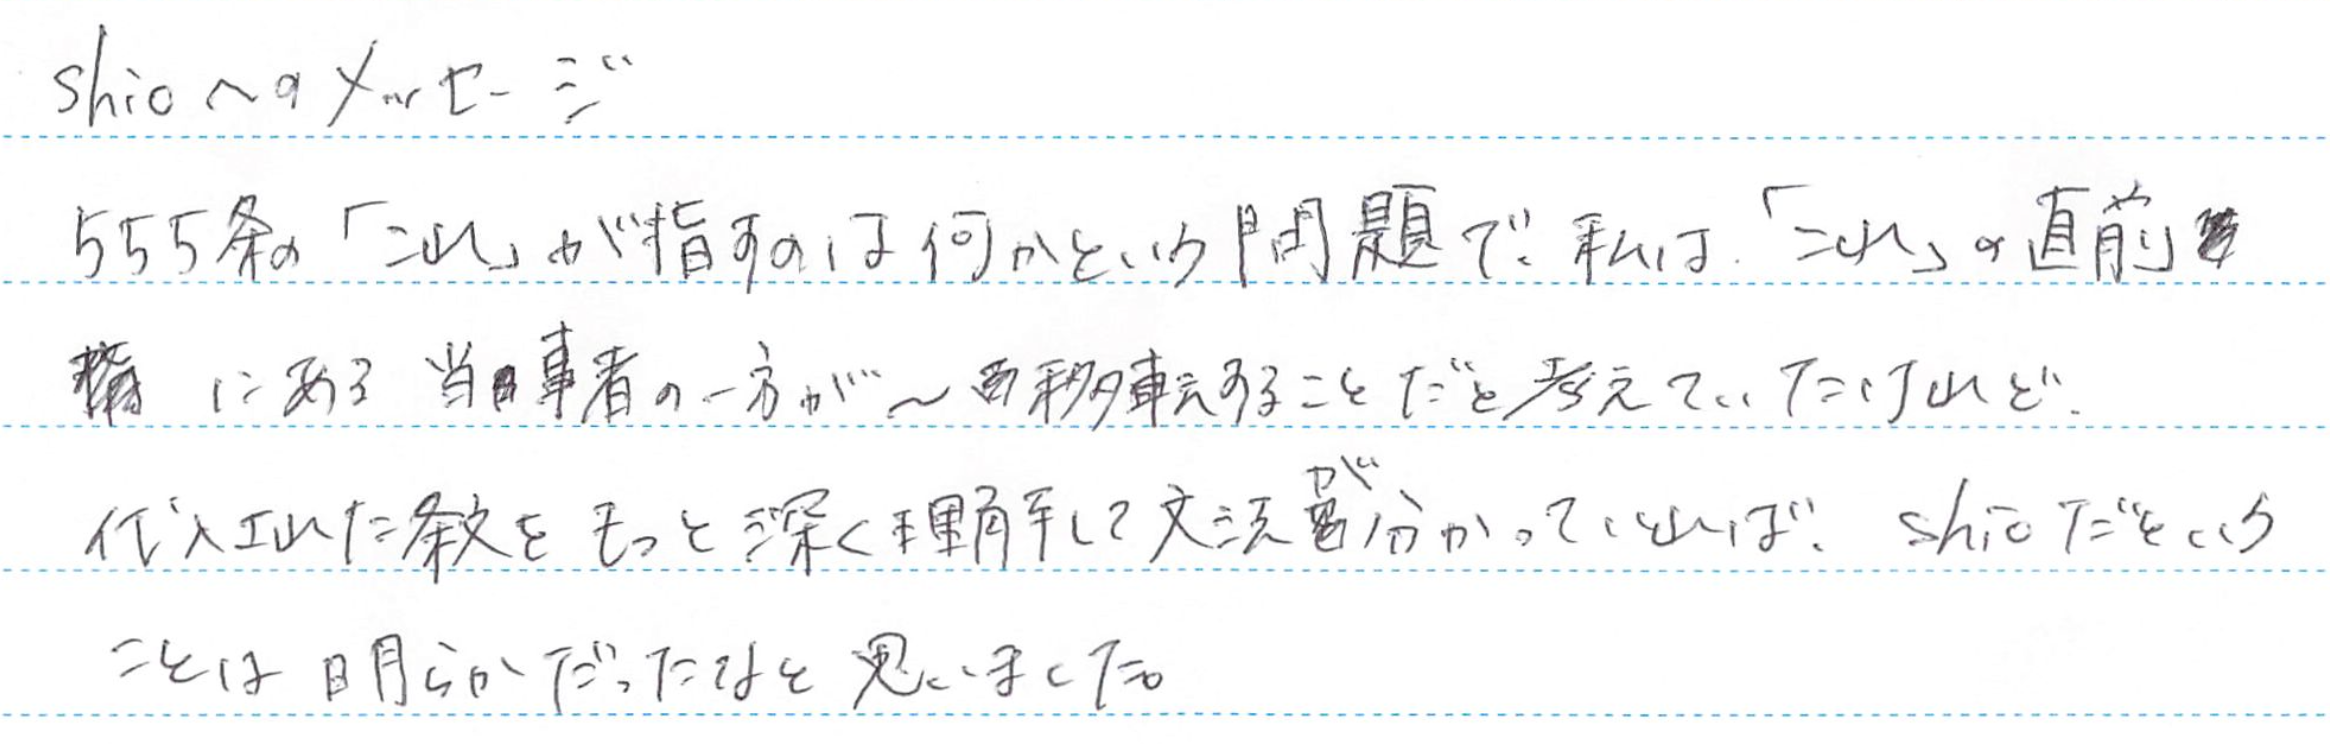 shioへのメッセージ
555条の「これ」が指すのは何かという問題で、私は、「これ」の直前
にある当事者の一方が〜移転することだと考えていたけれど、
代入エれた条文をもっと深く理解して文法が分かっていれば、shioだという
ことは明らかだったなと思いました。